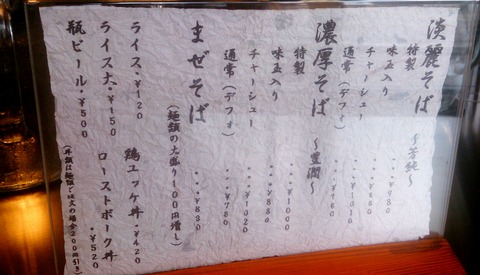 淡麗そば ～芳純～
特製
味玉入り ・・・¥880
チャーシュー ・・・¥1010
通常(デフォ)
濃厚そば ～豊潤～
特製 ・・・¥1000
味玉入り ・・・¥880
チャーシュー ・・・¥1020
通常(デフォ) ・・・¥780
まぜそば ・・・¥830
(麺類の大盛り100円増し)
ライス・¥120 鶏ユッケ丼・¥420
ライス大・¥150 ローストポーク丼・¥520
瓶ビール・¥500 (丼類は麺類で注文の場合200円引き)